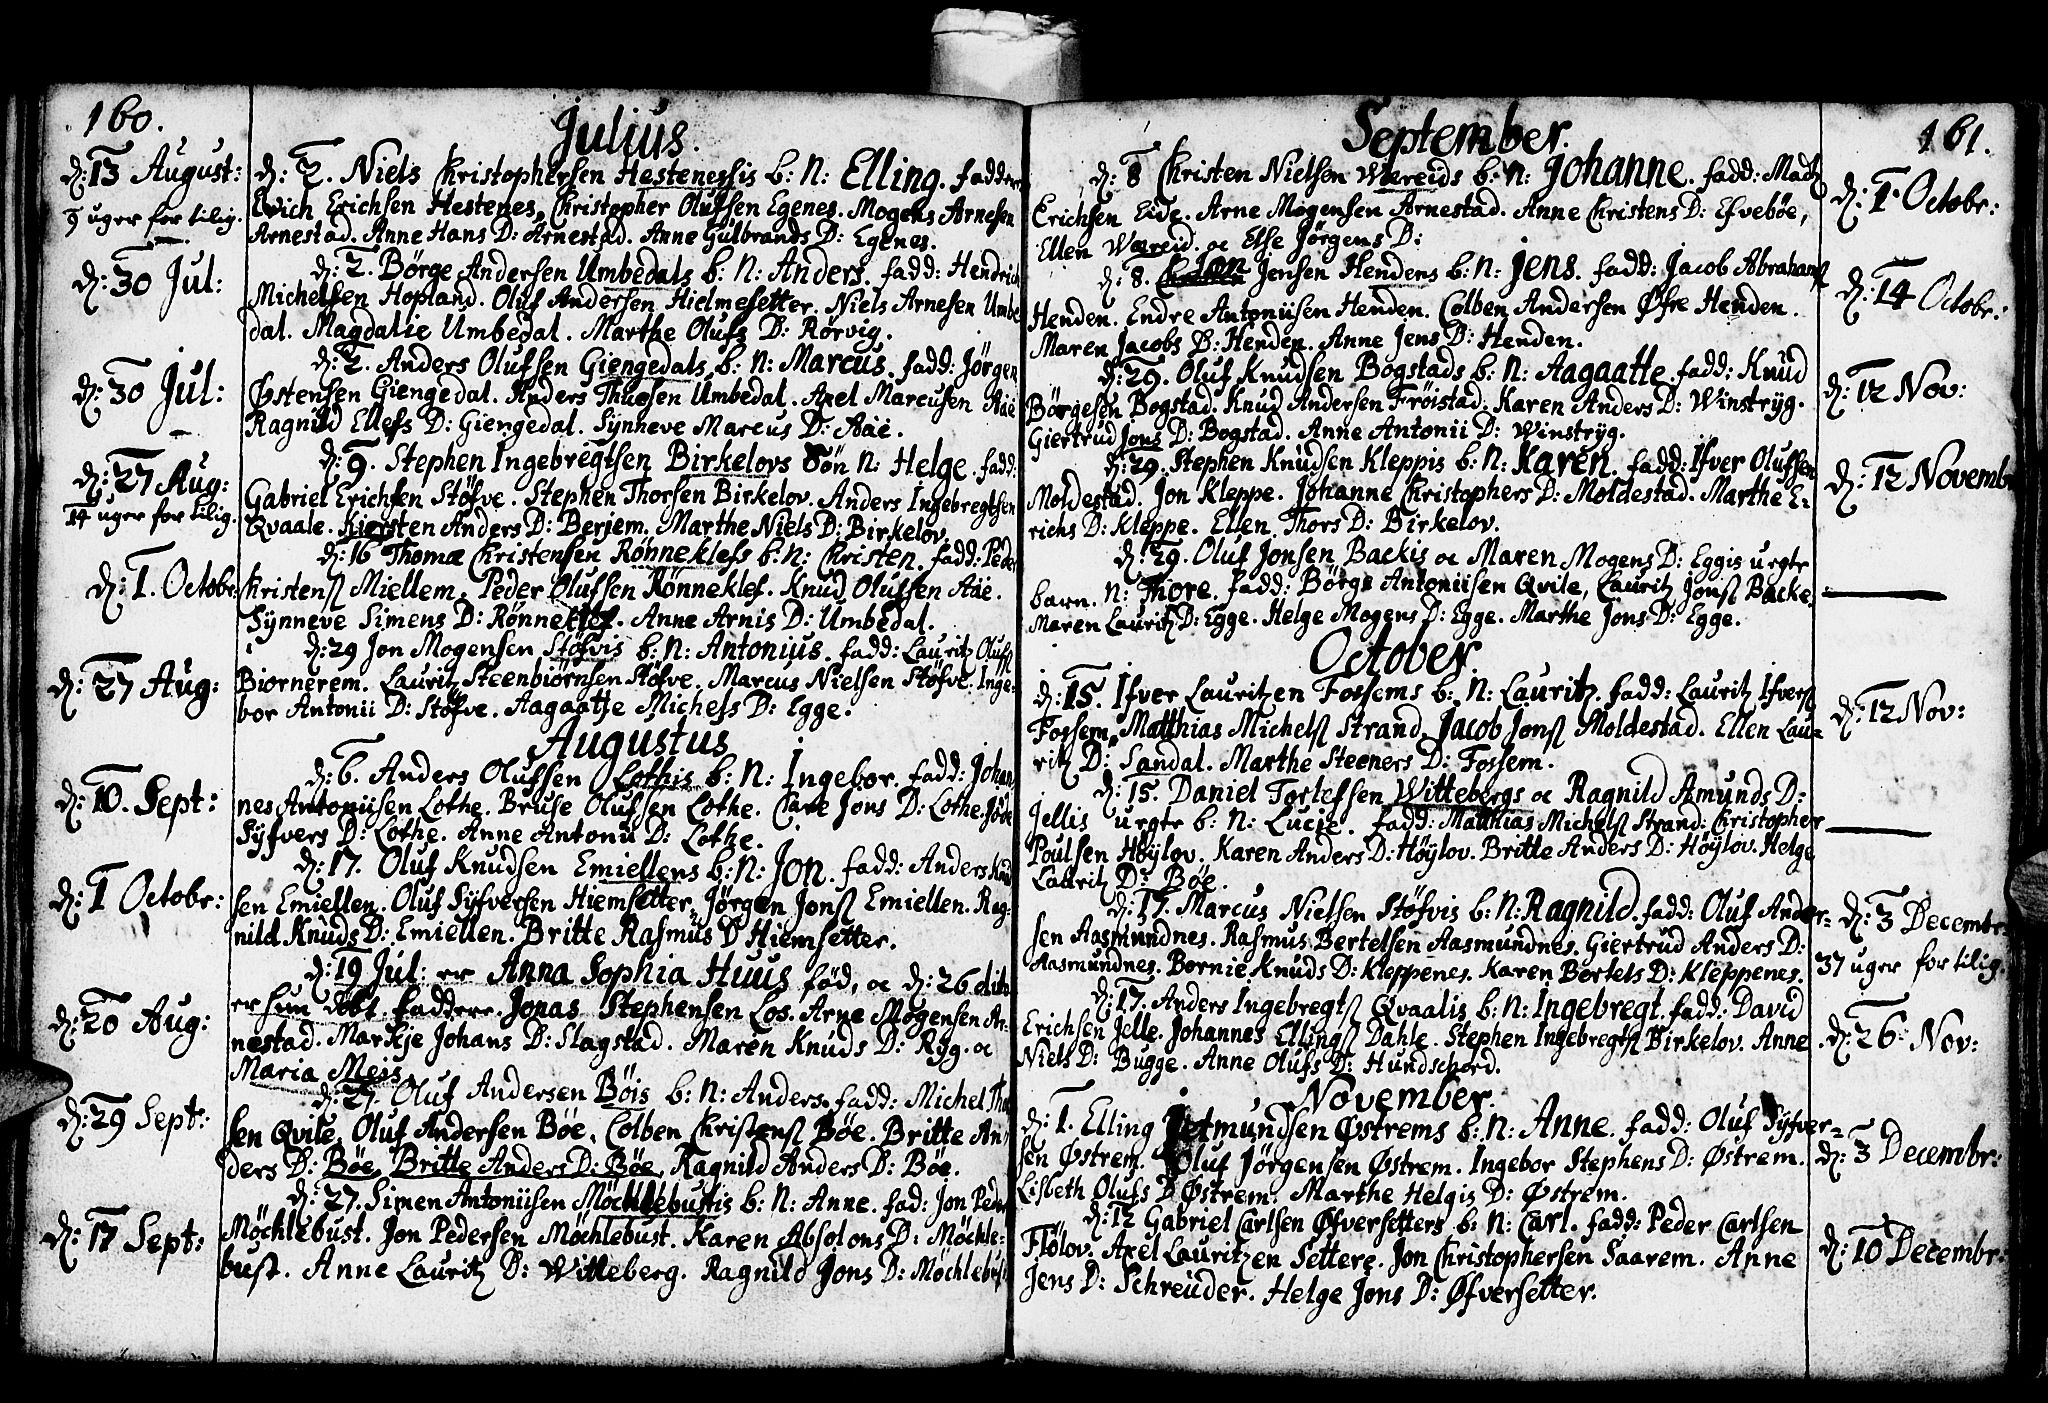 160.
Julius.
d: 13 August:
9 uger for tilig.
d: 30 Jul:
d: 30 Jul:
d: 27 Aug:
14 uger for tilig.
d: 1. Octobr:
d: 27 Aug:
d: 10. Sept:
d: 1 Octobr:
d: 20 Aug:
d: 29 Sept:
d: 17 Sept:
d: 2. Niels Christophersen Hestenessis b: N: Elling. fadder
Erich Erichsen Hestenes, Christopher Olufsen Egenes. Mogens Arnesen
Arnestad. Anne Hans D: Arnestad. Anne Gulbrands D: Egenes.
d: 2. Børge Andersen Umbedals b: N: Anders. fadd: Hendrich
Michelsen Hopland. Oluf Andersen Hielmesetter. Niels Arnesen Umbe
dal. Magdalie Umbedal. Marthe Olufs D: Rørvig.
d: 2. Anders Olufsen Giengedals b: n: Marcus. fadd: Jørgen
Østensen Giengedal. Anders Thuesen Umbedal. Axel Marcusen Aae
Ragnild Ellefs D: Giengedal. Synneve Marcus D: Aae.
d: 9. Stephen Ingebregtsen Birkelovs Søn N: Helge. fadd:
Gabriel Erichsen Støfve. Stephen Thorsen Birkelov. Anders Ingebregtsen
Qvaale. Kiersten Anders D: Berjem. Marthe Niels D: Birkelov.
d: 16 Thomæ Christensen Rønneklefs b: n: Christen. fadd: Peder
Christens Miellem. Peder Olufsen Rønneklef. Knud Olufsen Aae.
Synneve Simens D: Rønneklef. Anne Arnis D: Umbedal.
d: 29 Jon Mogensen Støfvis b: n: Antonius. fadd: Lauritz Olufs
Biornerem. Lauritz Steenbiørnsen Støfve. Marcus Nielsen Støfve. Inge-
bor Antonii D: Støfve. Aagaatje Michels D: Egge.
Augustus
d: 6. Anders Olufsen Lothis b: N: Ingebor. fadd: Johan
nes Antoniisen Lothe. Bruse Olufsen Lothe. Jons D: Lothe.
Syfvers D: Lothe. Anne Antonii D: Lothe.
d: 17. Oluf Knudsen Emiellens b: N: Jon. fadd: Anders Knud
sen Emiellen. Oluf Syfversen Hiemsetter. Jørgen Jons Emiellen. Rag-
nild Knuds D: Emiellen. Britte Rasmus D Hiemsetter.
d: 19 Jul: er Anna Sophia Huus fød, oc d: 26 dito
er hun døbt. faddere. Jonas Stephensen Los. Arne Mogensen Ar-
nestad. Markje Johans D: Slagstad. Maren Knuds D: Ryg. oc
Maria Meis.
d: 27. Oluf Andersen Bøis b: N: Anders. fadd: Michel
sen Qvile. Oluf Andersen Bøe. Colben Christens Bøe. Britte An-
ders D: Bøe. Britte Anders D: Bøe. Ragnild Anders D: Bøe.
d: 27. Simen Antoniisen Møchlebustis b: N: Anne. fad: Jon Peder
Møchlebust. Jon Pedersen Møchlebust. Karen Absolons D: Møchle-
bust. Anne Lauritz D: Witteberg. Ragnild Jons D: Møchlebust
September.
161.
d: 8 Christen Nielsen Wereids b: n: Johanne. fadd: Madz
Erichsen Eide. Arne Mogensen Arnestad. Anne Christens D: Efvebøe,
Ellen Wereid. oc Else Jørgens D:
d: 8. Jon Jensen Hendens b: n: Jens. fadd: Jacob Abrahams
Henden. Endre Antoniisen Henden. Colben Andersen Øfre Henden.
Maren Jacobs D: Henden. Anne Jens D: Henden.
d: 29. Oluf Knudsen Bogstads b: n: Aagaatte. fadd: Knud
Børgesen Bogstad. Knud Andersen Frøistad. Karen Anders D: Winstryg.
Giertrud Jons D: Bogstad. Anne Antonii D: Winstryg.
d: 29. Stephen Knudsen Kleppis b: n: Karen. fadd: Ifver Olufsen
Moldestad. Jon Kleppe. Johanne Christophers D: Moldestad. Marthe E-
richs D: Kleppe. Ellen Thors D: Birkelov.
d: 29. Oluf Jonsen Backis oc Maren Mogens D: Eggis uegte
barn. n: Thore. fadd: Børge Antoniisen Qvile, Lauritz Jons Backe.
Maren Lauritz D: Egge. Helge Mogens D: Egge. Marthe Jons D: Egge.
October.
d: 15. Ifver Lauritzen Fossems b: N: Lauritz. fadd: Lauritz Ifvers
Fossem. Matthias Michels Strand. Jacob Jons Moldestad. Ellen Lau-
ritz D: Sandal. Marthe Steeners D: Fossem.
d: 15. Daniel Torlefsen Wittebergs oc Ragnild Amunds D:
Jellis uegte b: N: Lucie. fadd: Matthias Michels Strand. Christopher
Poulsen Høylov. Karen Anders D: Høylov. Britte Anders D: Høylov. Helge
Lauritz D: Bøe.
d: 17. Marcus Nielsen Støfvis b: N: Ragnild. fadd: Oluf Ander-
sen Aasmundnes. Rasmus Bertelsen Aasmundnes. Giertrud Anders D:
Aasmundnes. Bornie Knuds D: Kleppenes. Karen Bertels D: Kleppenes.
d: 17. Anders Ingebregts Qvaalis b: N: Ingebregt. fadd: David
Erichsen Jelle. Johannes Ellings Dahle. Stephen Ingebregts Birkelov. Anne
Niels D: Bugge. Anne Olufs D: Hundschord.
November.
d: 1. Elling Jetmundsen Østrems b: N: Anne. fadd: Oluf Syfver-
sen Østrem. Oluf Jørgensen Østrem. Ingebor Stephens D: Østrem.
Lisbeth Olufs D Østrem. Marthe Helgis D: Østrem.
d: 12 Gabriel Carlsen Øfversetters b: N: Carl. fadd: Peder Carlsen
Fløtov. Axel Lauritzen Settere. Jon Christophersen Saarem. Anne
Jens D: Schreuder. Helge Jons D: Øfversetter.
d: 1. Octobr:
d: 14 Octobr:
d: 12 Nov:
d: 12 Novembr
d: 12 Nov:
d: 3 Decembr:
37 uger for tilig.
d: 26 Nov:
d: 3 Decembr:
d: 10 Decembr: